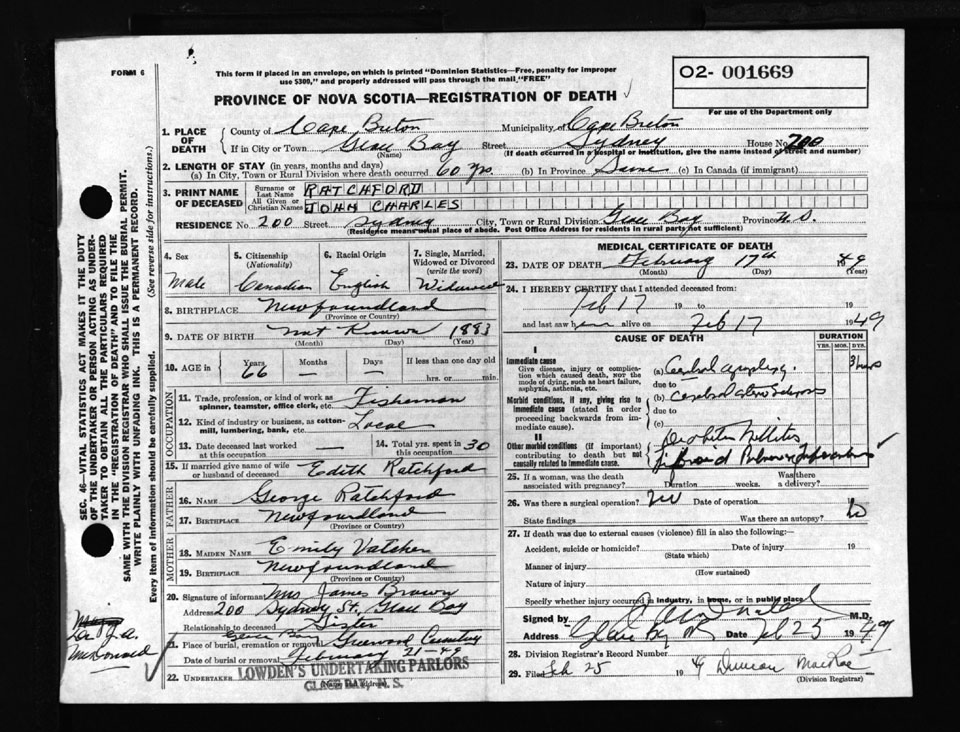 FORM 6
This form if placed in an envelope, on which is printed "Dominion Statistics—Free, penalty for improper
use $300," and properly addressed will pass through the mail "FREE"
O2- 001669
For use of the Department only
PROVINCE OF NOVA SCOTIA—REGISTRATION OF DEATH
1. PLACE OF DEATH
County of Cape Breton Municipality of Cape Breton
If in City or Town Glace Bay Street Sydney House No. 200
(Name) (If death occurred in a hospital or institution, give the name instead of street and number)
2. LENGTH OF STAY (in years, months and days)
(a) In City, Town or Rural Division where death occurred 60 yrs. (b) In Province Same (c) In Canada (if immigrant)
3. PRINT NAME OF DECEASED
Surname or Last Name RATCHFORD
All Given or Christian Names JOHN CHARLES
RESIDENCE No 200 Street Sydney City, Town or Rural Division Glace Bay Province N.S.
(Residence means usual place of abode. Post Office Address for residents in rural parts not sufficient)
4. Sex 5. Citizenship (Nationality) 6. Racial Origin 7. Single, Married, Widowed or Divorced (write the word)
Male Canadian English Widowed
8. BIRTHPLACE Newfoundland
(Province or Country)
9. DATE OF BIRTH Not Known 1883
(Month) (Day) (Year)
10. AGE in Years Months Days If less than one day old
66 — — hrs. or min.
OCCUPATION
11. Trade, profession, or kind of work as spinner, teamster, office clerk, etc. Fisherman
12. Kind of industry or business, as cotton-mill, lumbering, bank, etc. Local
13. Date deceased last worked at this occupation — 14. Total yrs. spent in this occupation 30
15. If married give name of wife or husband of deceased Edith Ratchford
FATHER
16. Name George Ratchford
17. Birthplace Newfoundland
(Province or Country)
MOTHER
18. MAIDEN NAME Emily Vatcher
19. BIRTHPLACE Newfoundland
(Province or Country)
20. Signature of informant Mrs James Brown
Address 200 Sydney St, Glace Bay
Relationship to deceased Sister
21. Place of burial, cremation or removal Glace Bay Greenwood Cemetery
Date of burial or removal February 21-49
22. UNDERTAKER LOWDEN'S UNDERTAKING PARLORS
GLACE BAY, N.S.
MEDICAL CERTIFICATE OF DEATH
23. DATE OF DEATH February 17th 49
(Month) (Day) (Year)
24. I HEREBY CERTIFY that I attended deceased from:
Feb 17 19 to 19
and last saw h alive on Feb 17 1949
CAUSE OF DEATH
DURATION
YRS. MOS. DYS.
I
Immediate cause
Give disease, injury or complication which caused death, not the mode of dying, such as heart failure, asphyxia, asthenia, etc.
(a) Cerebral 3 hours
due to
Morbid conditions, if any, giving rise to immediate cause (stated in order proceeding backwards from immediate cause).
(b) Cerebral
due to
(c)
II
Other morbid conditions (if important) contributing to death but not causally related to immediate cause.
25. If a woman, was the death associated with pregnancy? Duration weeks. Was there a delivery?
26. Was there a surgical operation? No Date of operation 19
State findings Was there an autopsy? No
27. If death was due to external causes (violence) fill in also the following:
Accident, suicide or homicide? Date of injury 19
(State which)
Manner of injury
(How sustained)
Nature of injury
Specify whether injury occurred in industry, in home, or in public place
Signed by M.D.
Address Glace Bay Date Feb 25 1949
28. Division Registrar's Record Number
29. Filed Feb 25 19 49 Duncan MacRae
(Division Registrar)
SEC. 46—VITAL STATISTICS ACT MAKES IT THE DUTY
OF THE UNDERTAKER OR PERSON ACTING AS UNDER-
TAKER TO OBTAIN ALL THE PARTICULARS REQUIRED
IN THE "REGISTRATION OF DEATH" AND TO FILE THE
SAME WITH THE DIVISION REGISTRAR WHO SHALL ISSUE THE BURIAL PERMIT.
WRITE PLAINLY WITH UNFADING INK. THIS IS A PERMANENT RECORD.
Every item of information should be carefully supplied. (See reverse side for instructions.)
Dr J.A.
McDonald